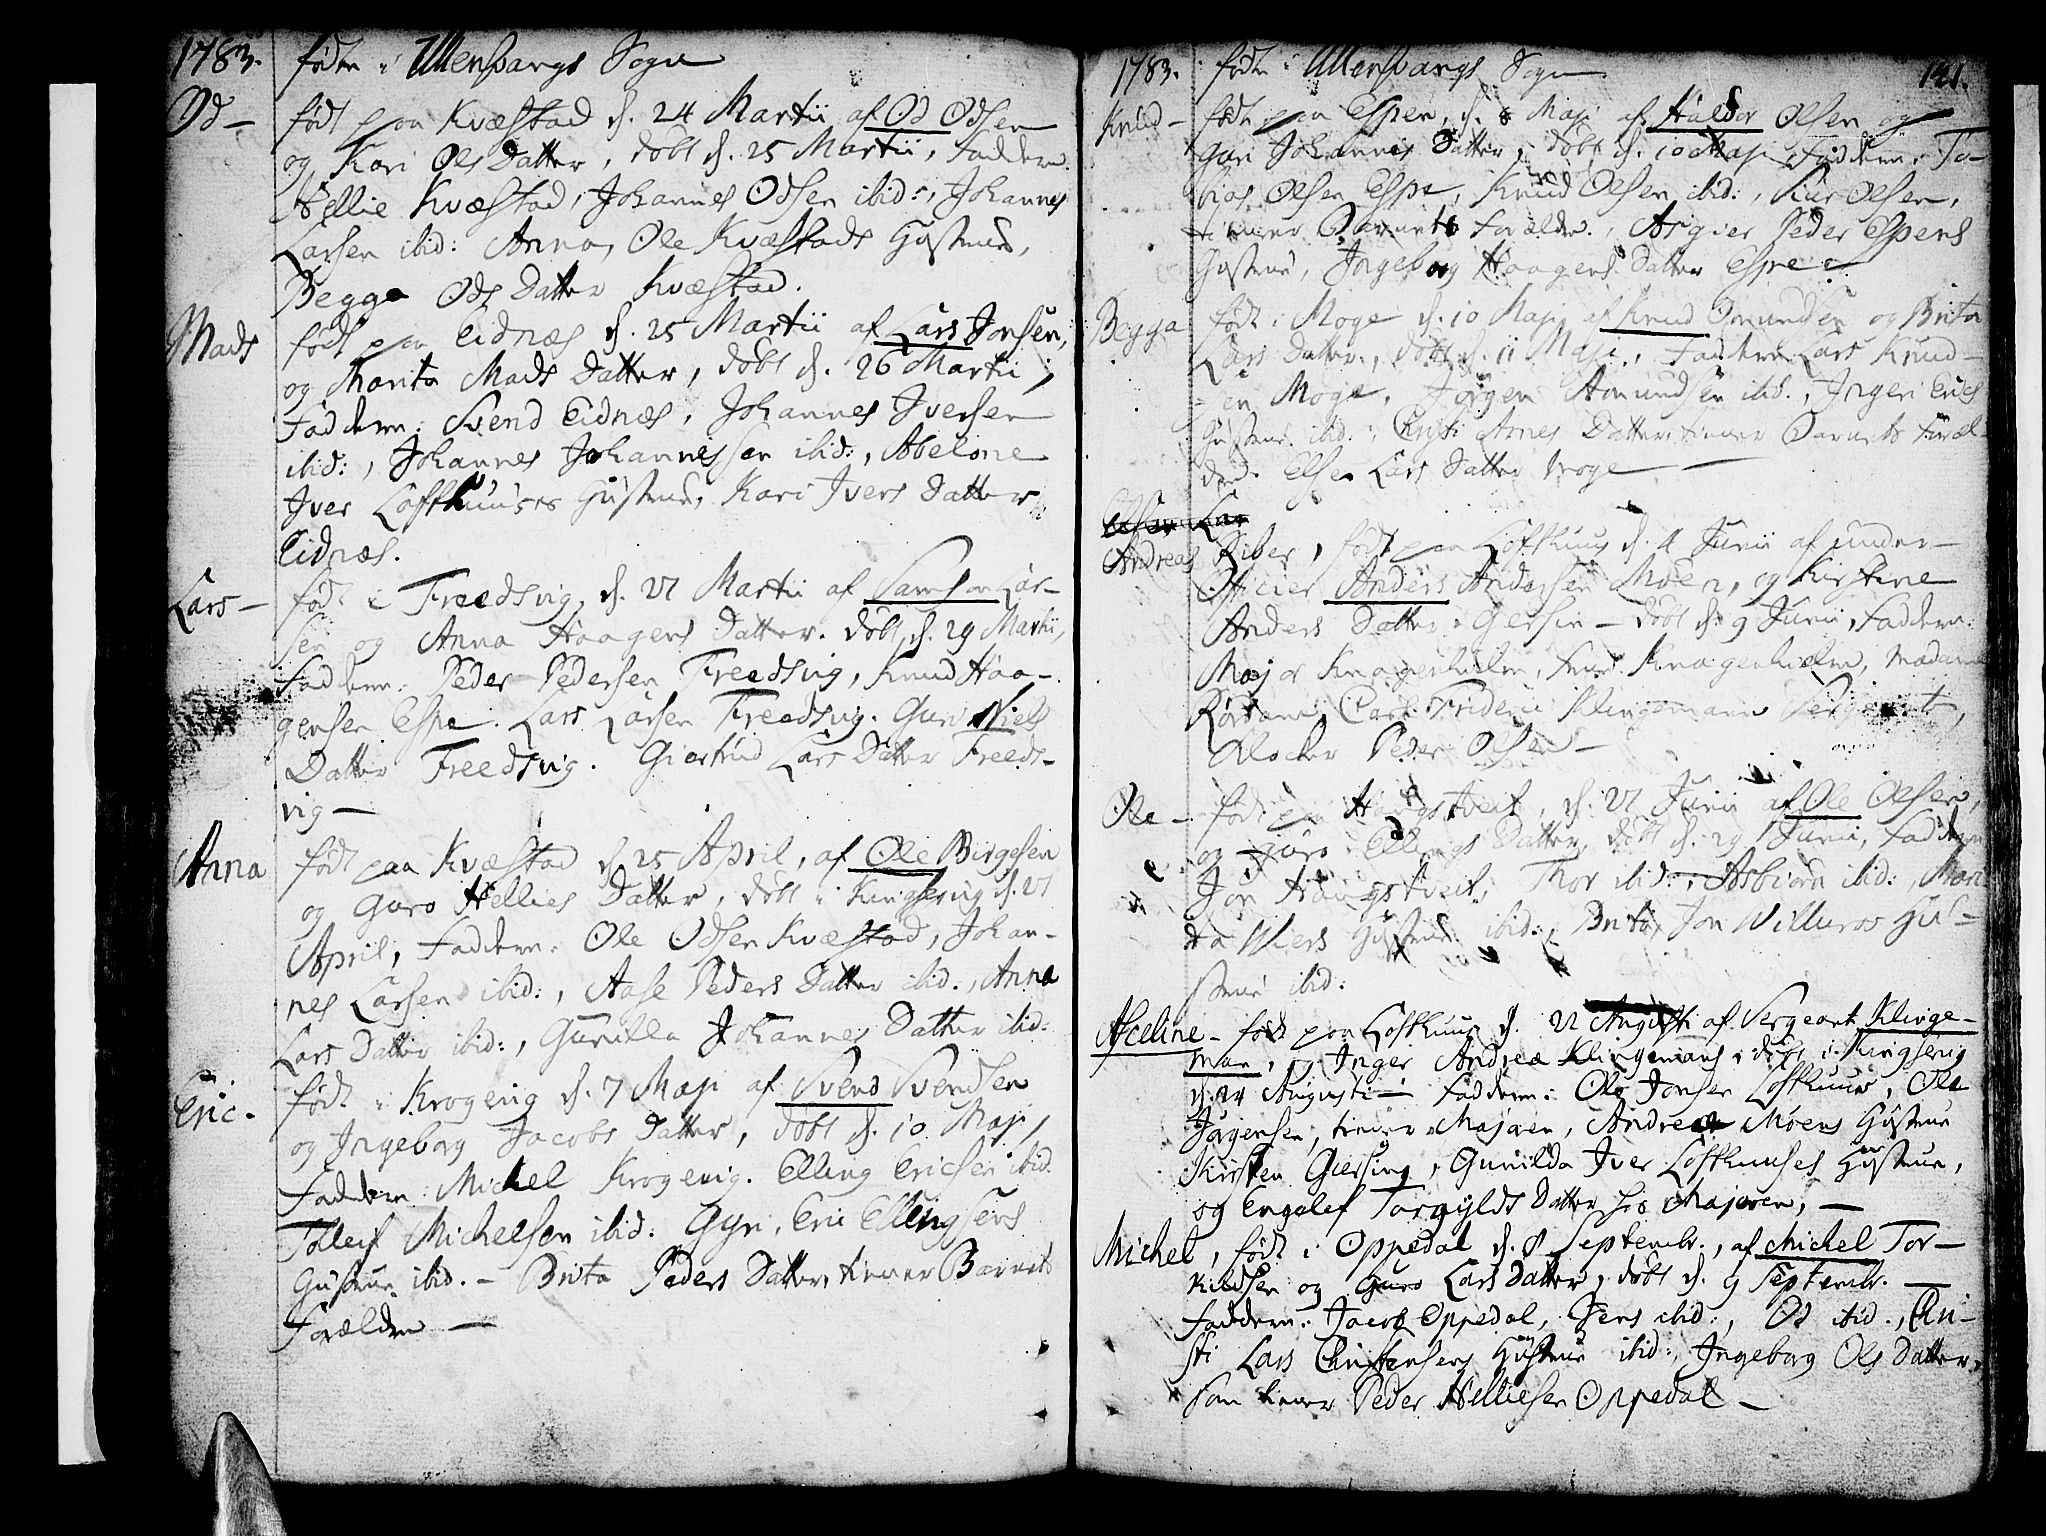 1783. fødte i Ullensvangs Sogn
Od – født paa Kvæstad d. 24 Martii af Od Odsen
og Kari Ols Datter, døbt d. 25 Martii, Faddere.
Hellie Kvæstad, Johannes Odsen ibid:, Johannes
Larsen ibid: Anna, Ole Kvæstads Hustrue,
Begga Ods Datter Kvæstad.
Mads født paa Eidnæs d. 25 Martii af Lars Jonsen,
og Marita Mads Datter, døbt d. 26 Martii,
Faddere: Svend Eidnæs, Johannes Iversen
ibid:, Johannes Johannessen ibid:, Abelone
Iver Lofthuuses Hustrue, Kari Ivers Datter
Eidnæs.
Lars – født i Freedsvig d. 27 Martii af Samson Lar-
sen og Anna Haagens Datter. døbt d. 29 Martii,
Faddere: Peder Pedersen Freedsvig, Knud Haa-
gensen Espe. Lars Larsen Freedsvig. Guri Niels
Datter Freedsvig. Giertrud Lars Datter Freeds-
vig –
Anna født paa Kvæstad d. 25 April, af Ole Birgesen
og Guro Hellies Datter, døbt i Kingservig d. 27
April, Faddere: Ole Odsen Kvæstad, Johan-
nes Larsen ibid:, Aase Peders Datter ibid., Anna
Lars Datter ibid:, Gunilla Johannes Datter ibid:
Eric. født i Krogevig d. 7 Maji af Svend Svendsen
og Ingeborg Jacobs Datter, døbt d. 10 Maji,
Faddere: Michel Krogevig. Elling Ericsen ibid.
Tolleif Michelsen ibid: Gyri, Eric Ellingsens
Hustrue ibid. – Brita Peders Datter, tiener Barnets
Forældre –
1783. fødte i Ullensvangs Sogn 141.
Knud – født paa Espen, d. 8 Maji af Haldor Olsen og
Guri Johannis Datter, døbt d. 10 Maji, Faddere: To-
bias Olsen Espe, Knud Olsen ibid:, Olsen,
tiener Barnets Forældre., Peder Espens
Hustrue, Ingeborg Haagens Datter Espe –
Begga født i Moge d. 10 Maji af Knud Omundsen og Brita
Lars Datter, døbt d. 11 Maji., Faddere Lars Knud-
sen Moge, Jørgen Amundsen ibid., Ingeri Erics
Hustrue ibid., Christi Arnes Datter, tiener Barnets Foræl-
dre. Else Lars Datter Moge –
Andreas Riber, født paa Lofthuus d. 4 Junii af under-
Officier Anders Andersen Moen, og Kirstine
Anders Datter Giersin – døbt d. 9 Junii, Faddere.
Major Knagenhielm, Frue Knagenhielm, Madame
Carl Frideric Klingemann Sergeant,
Klocker Peder Olsen –
Ole – født paa Haugstveit, d. 27 Junii af Ole Olsen,
og Guro Ellings Datter, døbt d. 29 Junii, Faddere
Jon Haugstveit, Thor ibid:, Asbiørn ibid:, Mari-
ta Wiers Hustrue ibid:, Brita, Jon Willuros Hu-
strue ibid:
Aceline – født paa Lofthuus d. 22 Augusti af Sergeant Klinge-
man, og Inger Andrea Klingemans, døbt i Kingservig
d. 24 Augusti – Faddere: Ole Jonsen Lofthuus, Ole
Jørgensen, tiener Majoren, Andreæ Moens Hustrue
Kirsten Giersing, Gunilda Iver Lofthuuses Hustrue,
og Engelef Torgylds Datter hos Majoren, –
Michel, født i Oppedal d. 8 Septembr., af Michel Tor-
kildsen og Guro Lars Datter, døbt d. 9 Septembr. –
Faddere: Jacob Oppedal, Jens ibid:, Od ibid., Chri-
sti Lars Christensens Hustrue ibid:, Ingeborg Ols Datter,
som tiener Peder Helliesen Oppedal –